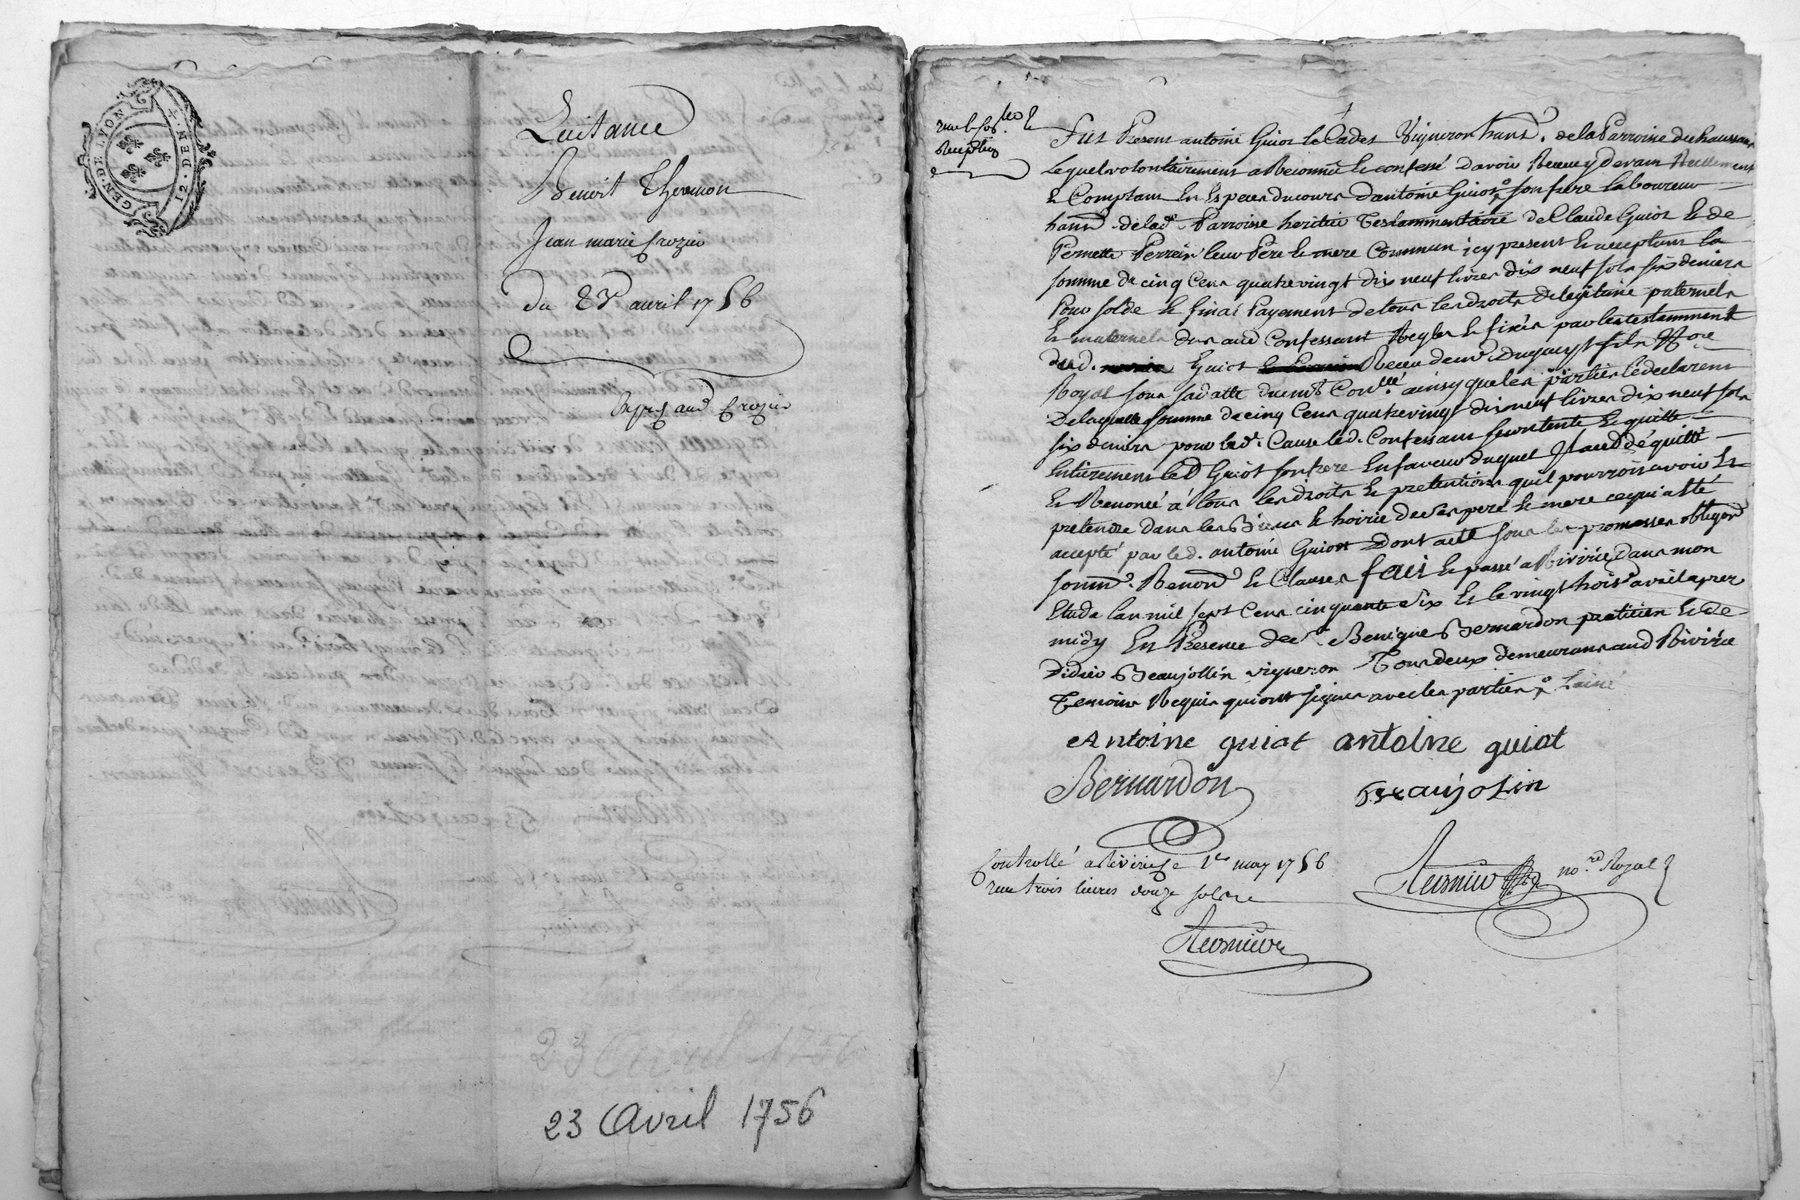 GEN. DE LYON
12. DEN. IER
Quitance
Benoist Thevenon
Jean marie Crozier
du 23e avril 1756
Crozier
23 Avril 1756
23 Avril 1756
Fut Present antoine Guiot le Cadet Vigneron hant. de la Parroisse de
Lequel volontairement a Reconnu & confessé d'avoir Receu cy devant Reellement
& Comptant En Especes du cours d'antoine Guiot son frere laboureur
hant. de lad. Parroisse heritier Testammentaire de Claude Guiot & de
Pernette Perrein leur Pere & mere Commun icy present & acceptant la
somme de cinq Cens quatre vingt dix neuf livres dix neuf sols six deniers
Pour solde & final Payement de tous les droits de legitime paternels
& maternels dus aud Confessant Regles & fixés par les testamment
dud. Guiot Receu de me. fils Nore
Royal sous sa datte duemt. Conllé ainsy que les parties le declarent
De laquelle somme de cinq Cens quatre vingt dix neuf livres dix neuf sols
six deniers pour led. Cause led. Confessant se contente & quitte
Entierement led Guiot son frere En faveur duquel Il a
& Renoncé à tous les droits & pretentions qu'il pourroit avoir &
pretendre dans les Biens & hoirie de ses pere & mere ce qui a été
accepté par led. antoine Guiot Dont acte sous les promesses obligaōns
soumns. Renons. & Clauses fait & passé a Riviriè dans mon
Etude l'an mil sept Cens cinquante six & le vingt trois avril apres
midy En Presence de sr. Benigne Bernardon praticien & de
Didier Beaujollin vigneron Tous deux demeurans aud Riviriè
Temoins Requis qui ont signés avec les parties # L'ainé
Antoine guiot antoine guiot
Bernardon
Beaujolin
Controllé a Riviriè le 1er may 1756
Receu trois livres douze sols
no.re Royal